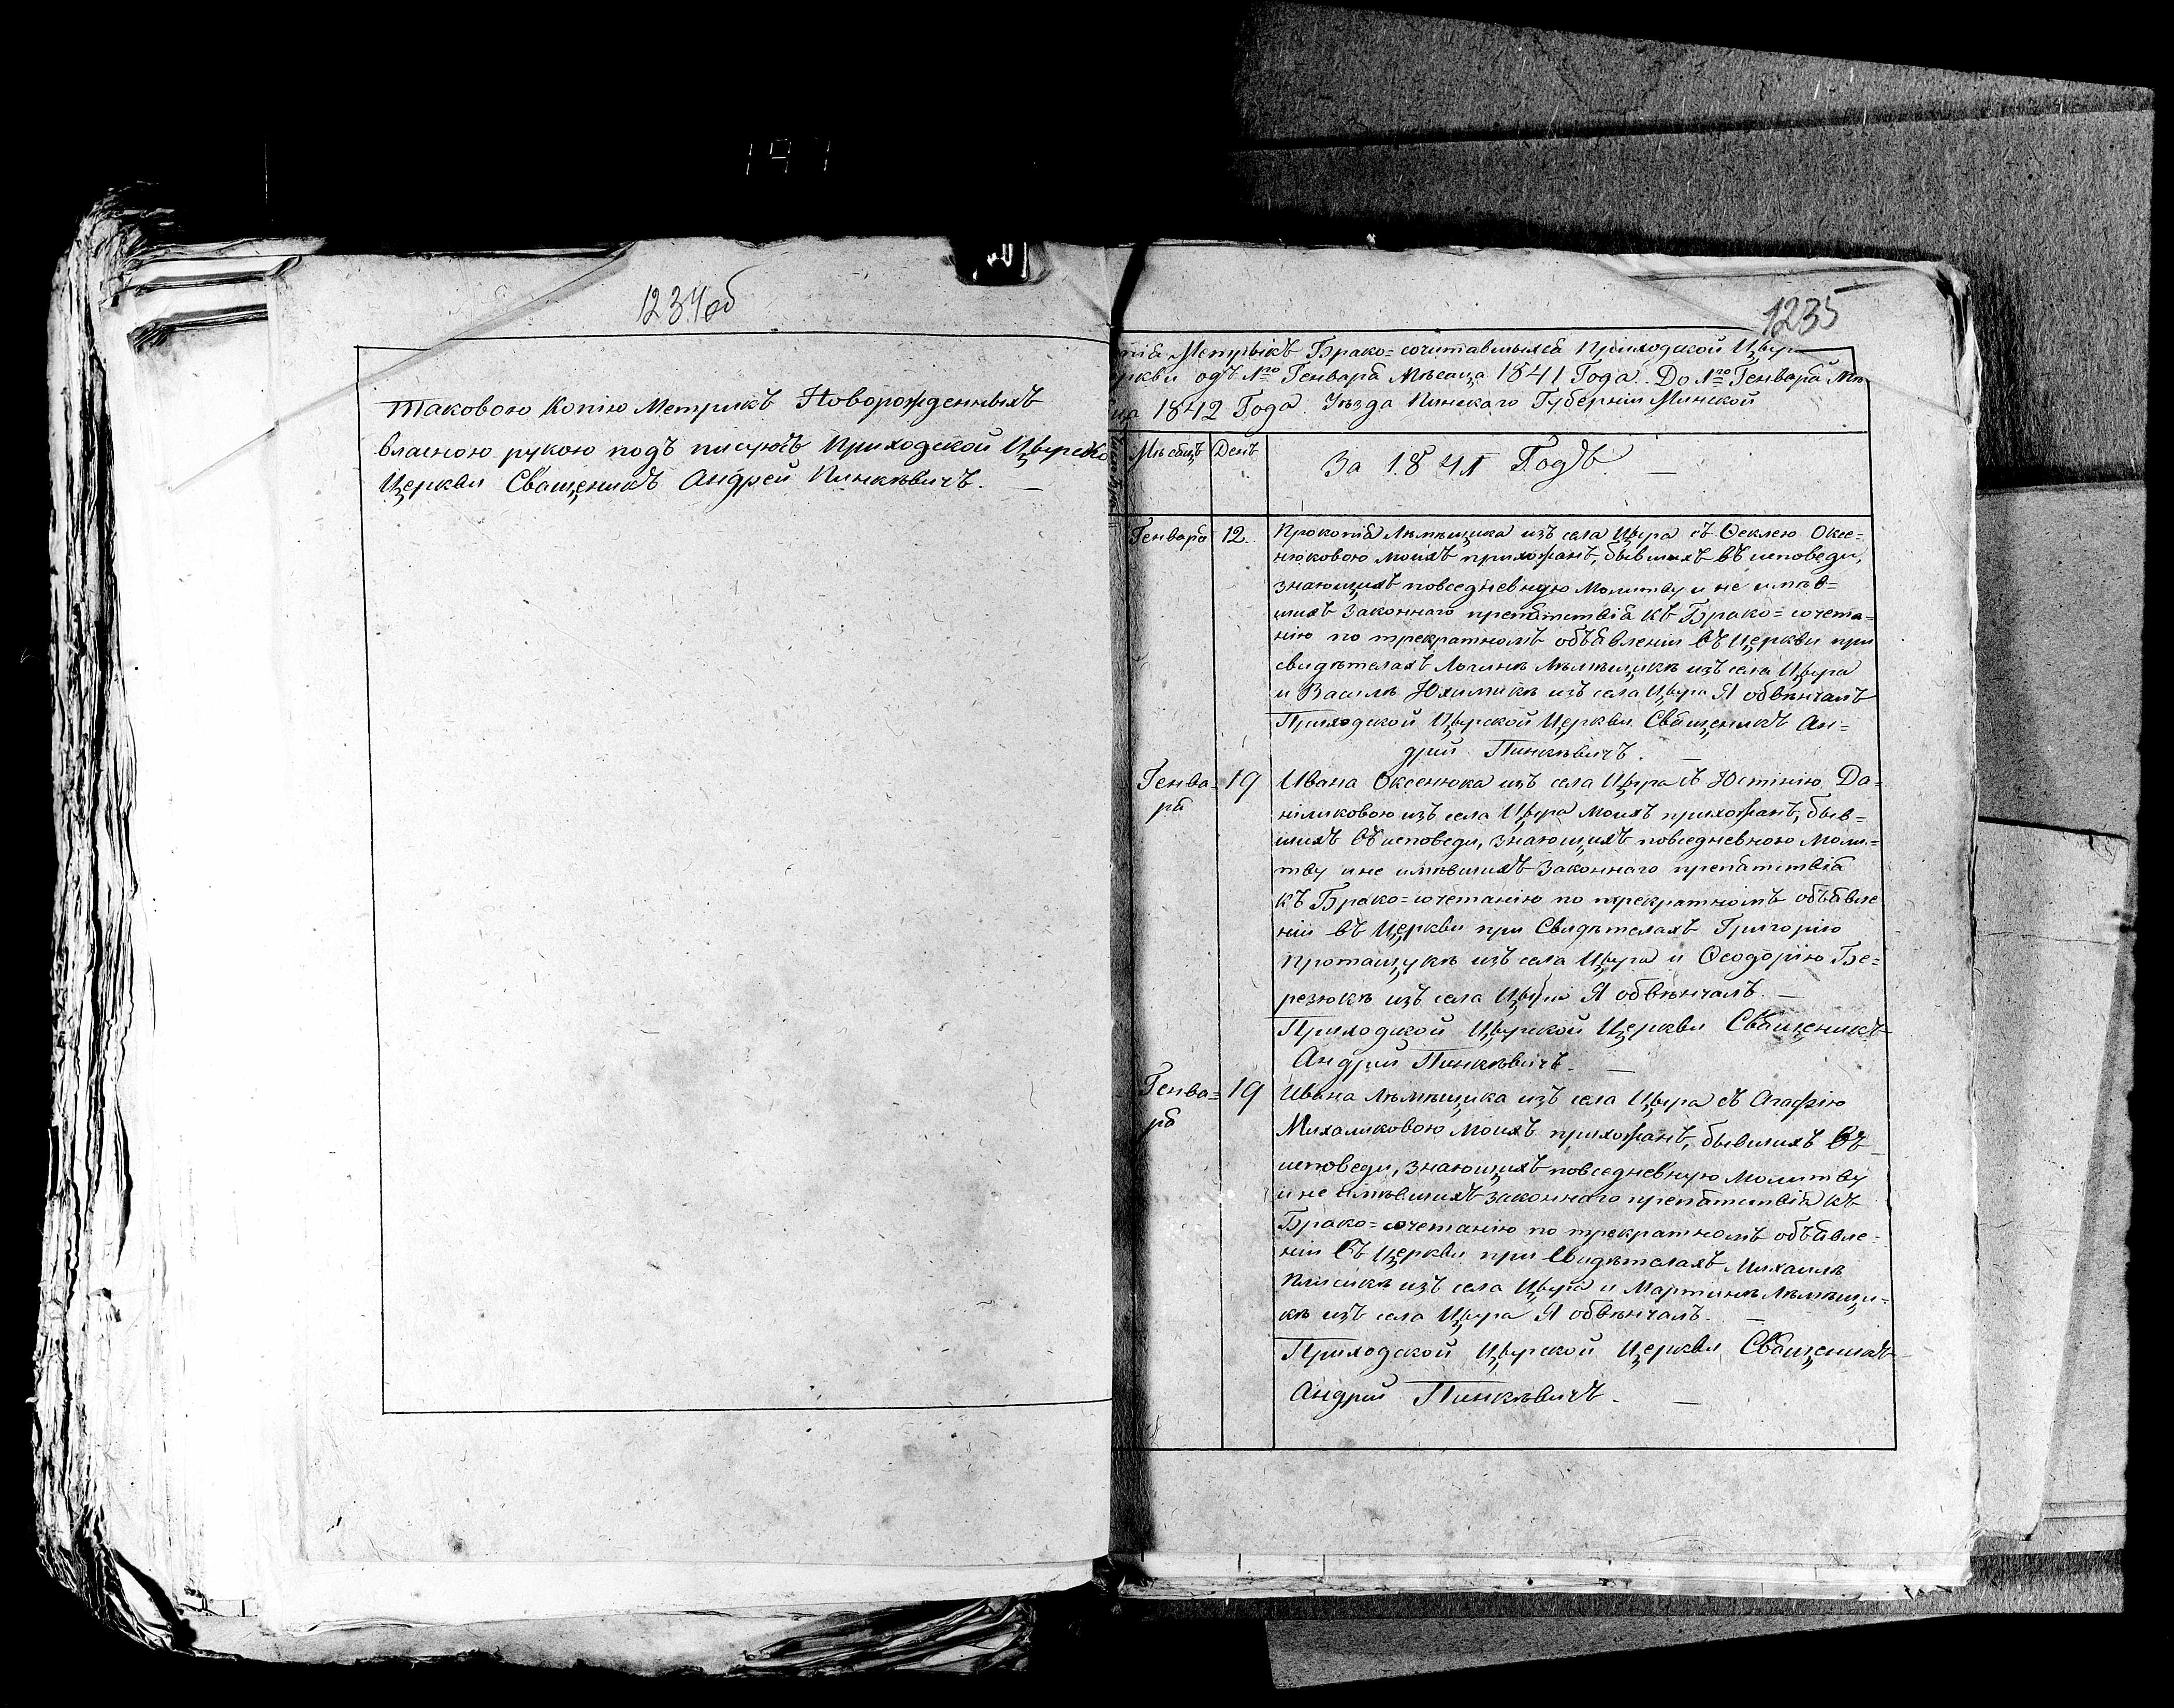 197
1234об
Таковою Копію Метрикъ Новорожденныхъ
власною рукою подъ писуюсь Приходской Цѣрско
Церкви Священикъ Андрей Пинкѣвичъ. —
1235
пія Метрыкъ Брако=сочитавшыхся Приходской Цѣр
ркви одъ 1го Генваря Мѣсяца 1841 Года. До 1го Генваря Мѣ
ца 1842 Года. Уѣзда Пинскаго Губерніи Минской
Мѣсяцъ День За 1841 Годъ —
Генваря 12. Прокопія Лѣмѣшика изъ села Цѣра съ Ѳеклею Оксе=
нюковою моихъ прихожанъ, бывшихъ въ исповеди,
знающихъ повседневную Молитву и не имѣв=
шихъ Законнаго препятствія къ Брако=сочета=
нію по трекратномъ объявленіи въ Церкви при
свидѣтеляхъ Логинѣ Лѣмѣшикѣ изъ села Цѣра
и Василѣ Юхимикѣ изъ села Цѣра Я обвѣнчалъ
Приходской Цѣрской Церкви Священикъ Ан=
дрей Пинкѣвичъ. —
Генва= 19 Ивана Оксенюка изъ села Цѣра съ Юстинію Да=
ря
ниликовою изъ села Цѣра моихъ прихожанъ, быв=
шихъ въ исповеди, знающихъ повседневною Моли=
тву и не имѣвшихъ Законнаго препятствія
къ Брако=сочетанію по трекратномъ объявле
ніи въ Церкви при Свидѣтеляхъ Григорію
Протащукѣ изъ села Цѣра и Ѳеодорію Бе=
резюкѣ изъ села Цѣра Я обвѣнчалъ. —
Приходской Цѣрской Церкви Священикъ
Андрей Пинкѣвичъ. —
Генва= 19 Ивана Лѣмѣшика изъ села Цѣра съ Агафію
ря
Михаликовою моихъ прихожанъ, бывшихъ въ
исповеди, знающихъ повседневную Молитву
и не имѣвшихъ законнаго препятствія къ
Брако=сочетанію по трекратномъ объявле=
ніи въ Церкви при Свидѣтеляхъ Михаилѣ
изъ села Цѣра и Мартинѣ Лѣмѣши=
кѣ изъ села Цѣра Я обвѣнчалъ. —
Приходской Цѣрской Церкви Священикъ
Андрей Пинкѣвичъ. —